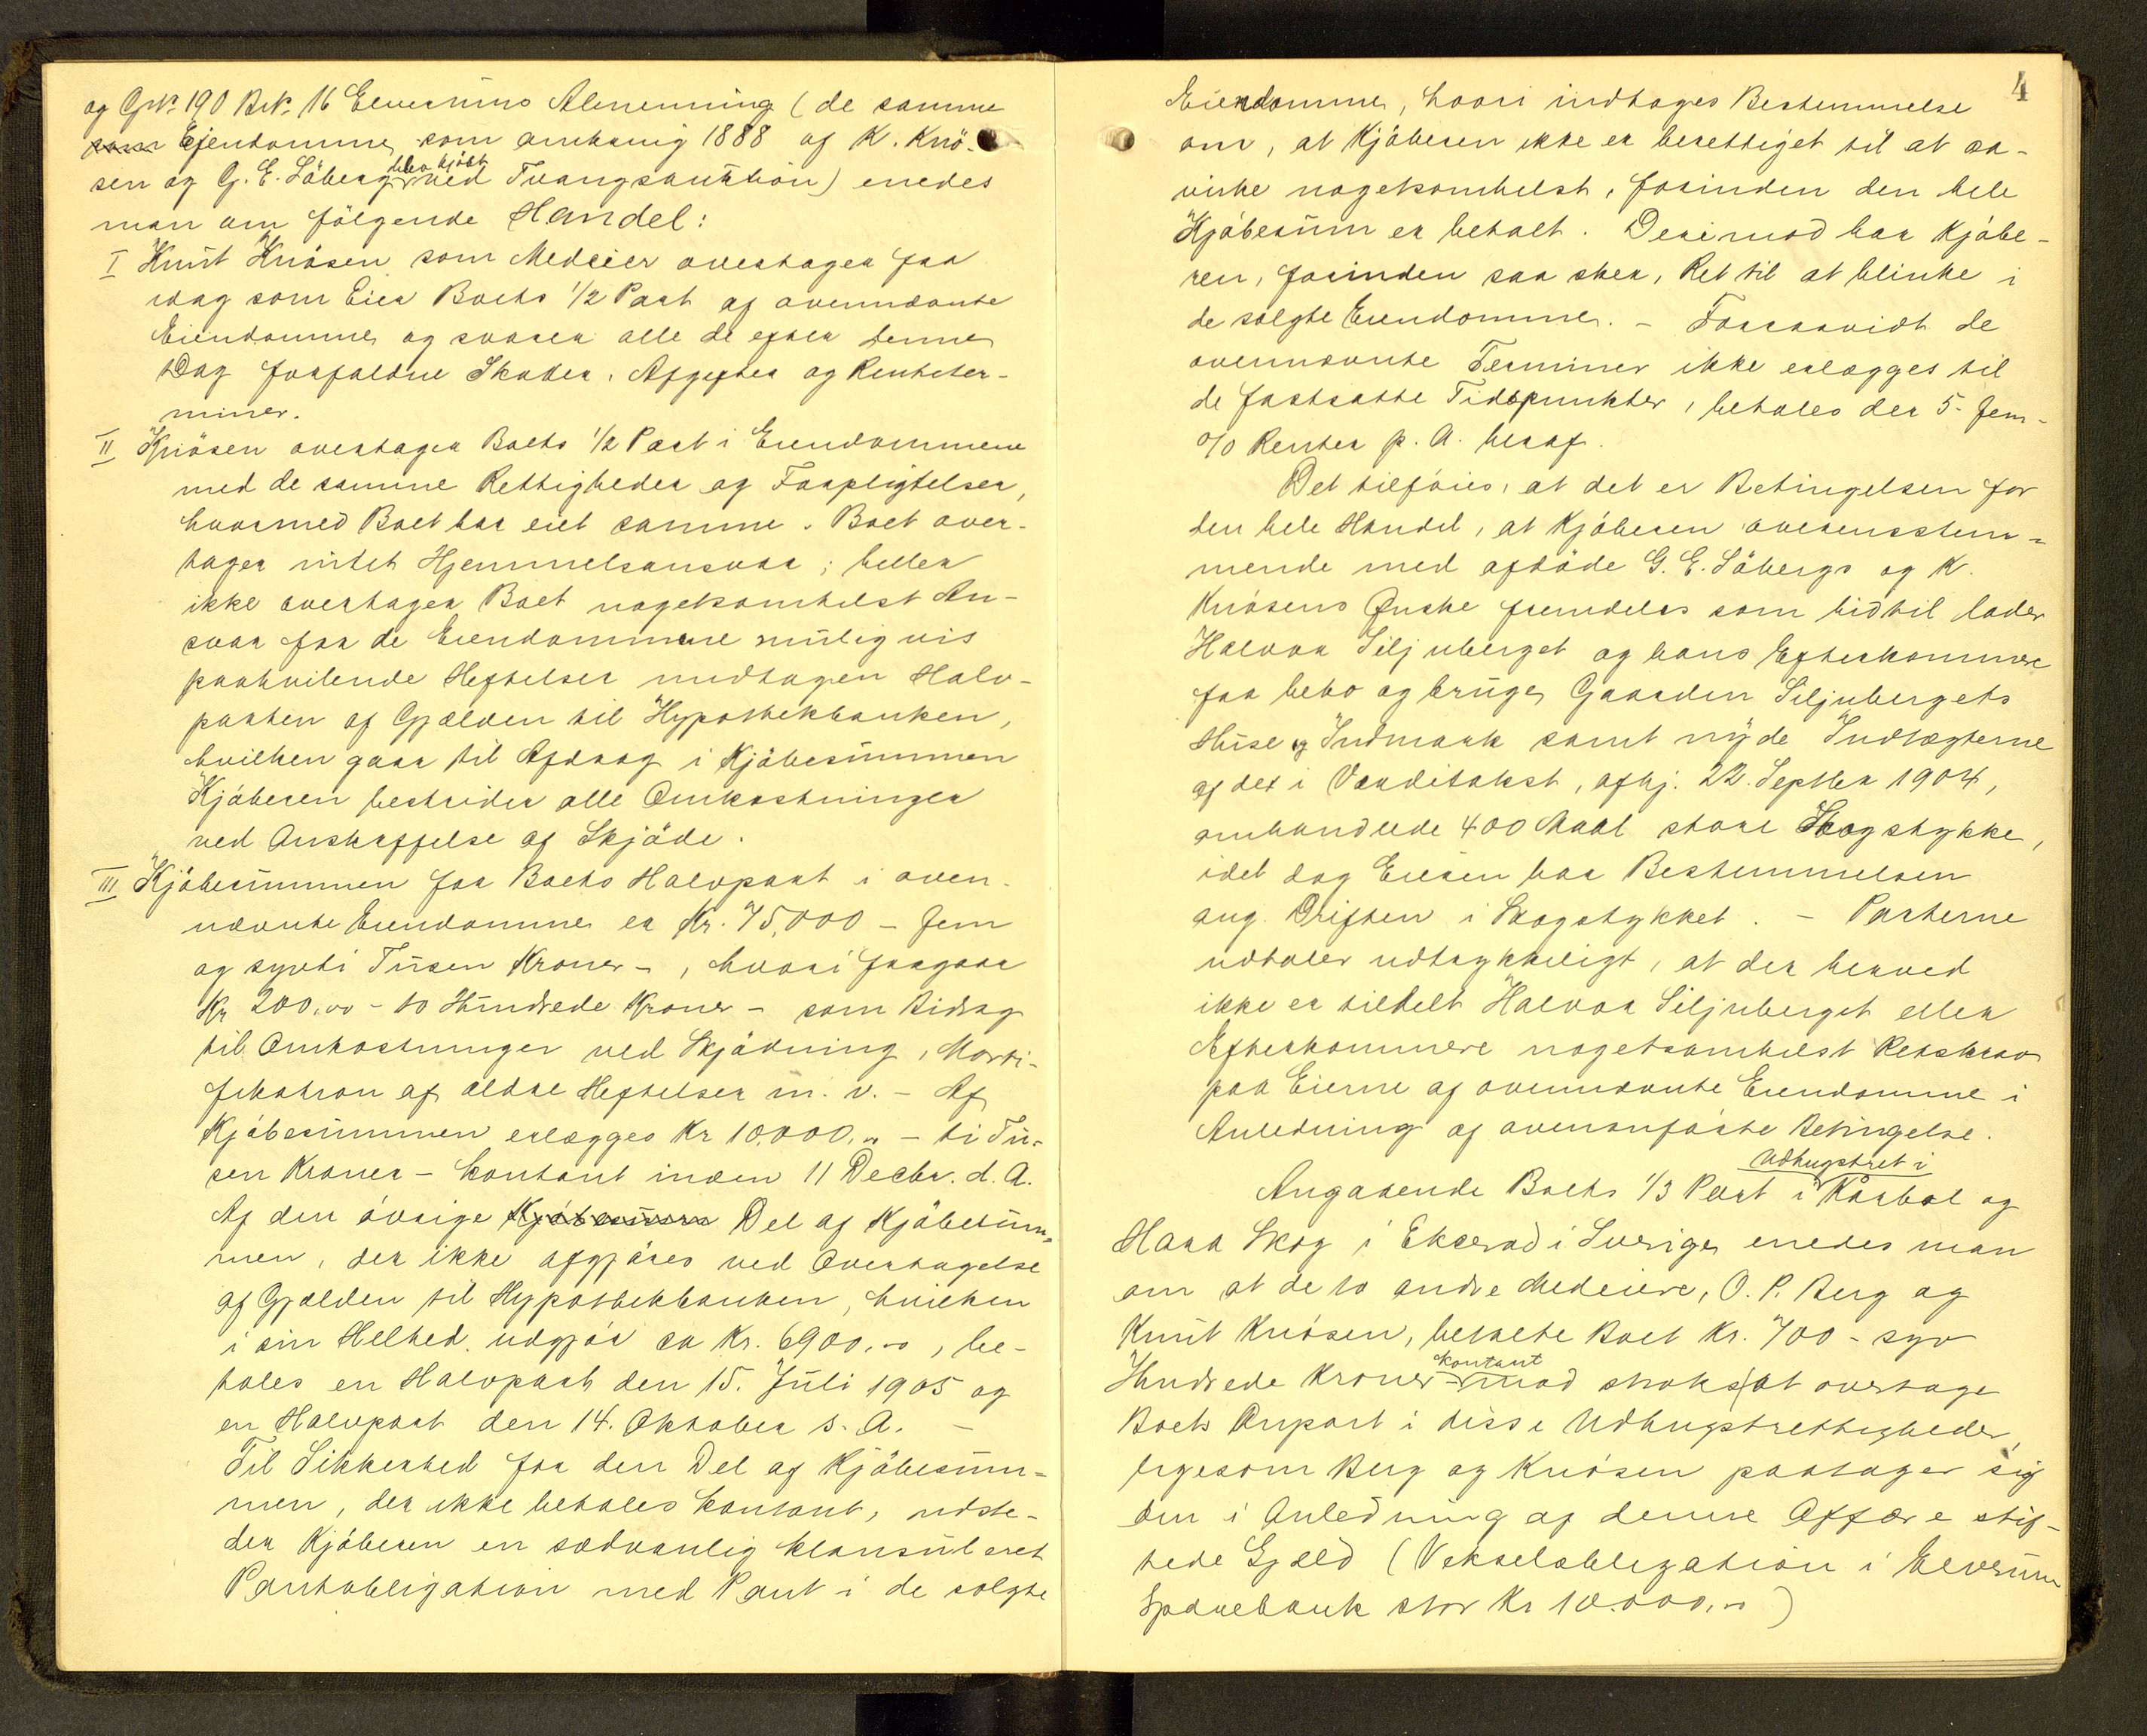 og Gnr. 190 Bnr. 16 Elverums Almenning (de samme
som Ejendomme, som omkring 1888 af K. Knö-
sen og G. E. Söberg blev kjöbt ved Tvangsauktion) enedes
man om fölgende Handel:
I Knut Knösen som Medeier overtager fra
idag som Eier Boets 1/2 Part af ovennævnte
Eiendomme og svarer alle de efter denne
Dag forfaldne Skatter, Afgifter og Renteter-
miner.
II Knösen overtager Boets 1/2 Part i Eiendommene
med de samme Rettigheder og Forpligtelser,
hvormed Boet har eiet samme. Boet over-
tager intet Hjemmelsansvar; heller
ikke overtager Boet nogetsomhelst An-
svar for de Eiendommene muligvis
paahvilende Heftelser undtagen Halv-
parten af Gjælden til Hypothekbanken,
hvilken gaar til Afdrag i Kjöbesummen
Kjöberen bestrider alle Omkostninger
ved Anskaffelse af Skjöde.
III Kjöbesummen for Boets Halvpart i oven-
nævnte Eiendomme er Kr. 75,000 - fem
og sytti Tusen Kroner -, hvori foregaar
Kr 200,00 - to Hundrede Kroner - som Bidrag
til Omkostninger ved Skjödning, Morti-
fikation af ældre Heftelser m. v. - Af
Kjöbesummen erlægges Kr 10.000,00 - ti Tu-
sen Kroner - kontant inden 11 Decbr. d. A.
Af den övrige Kjöbesum Del af Kjöbesum-
men, der ikke afgjöres ved Overtagelse
af Gjælden til Hypothekbanken, hvilken
i sin Helhed udgjör ca Kr. 6900,00, be-
tales en Halvpart den 15. Juli 1905 og
en Halvpart den 14. Oktober s. A. -
Til Sikkerhed for den Del af Kjöbesum-
men, der ikke betales kontant, udste-
der Kjöberen en sædvanlig klausuleret
Pantobligation med Pant i de solgte
4
Eiendomme, hvori indtages Bestemmelse
om, at Kjöberen ikke er berettiget til at
virke nogetsomhelst, forinden den hele
Kjöbesum er betalt. Derimod har Kjöbe-
ren, forinden saa sker, Ret til at blinke i
de solgte Eiendomme. - Forsaavidt de
ovennævnte Terminer ikke erlægges til
de fastsatte Tidspunkter, betales der 5- fem-
o/o Renter p. A. heraf.
Det tilföies, at det er Betingelsen for
den hele Handel, at Kjöberen overensstem-
mende med afdöde G. E. Söbergs og K.
Knösens Ønske fremdeles som hidtil lader
Halvor Siljuberget og hans Efterkommere
faa bebo og bruge Gaarden Siljubergets
Huse og Indmark samt nyde Indtægterne
af det i Værditakst, afhj. 22. Septber 1904,
omhandlede 400 Maal store Skogstykke,
idet dog Eieren har Bestemmelsen
ang. Driften i Skogstykket. - Parterne
udtaler udtrykkeligt, at der herved
ikke er tildelt Halvor Siljuberget eller
Efterkommere nogetsomhelst Retskrav
paa Eierne af ovennævnte Eiendomme i
Anledning af ovenanförte Betingelse.
Angaaende Boets 1/3 Part i Udhugstret i Kaarbol og
Haaa Skog i Ekserad i Sverige enedes man
om at de to andre Medeiere, O. P. Berg og
Knut Knösen, betalte Boet Kr. 700 - syv
Hundrede Kroner - kontant mod straks at overtage
Boets Anpart i disse Udhugstrettigheder,
ligesom Berg og Knösen paatager sig
den i Anledning af denne Affære stif-
tede Gjæld (Vekselobligation i Elverum
Sparebank stor Kr 10.000,00)